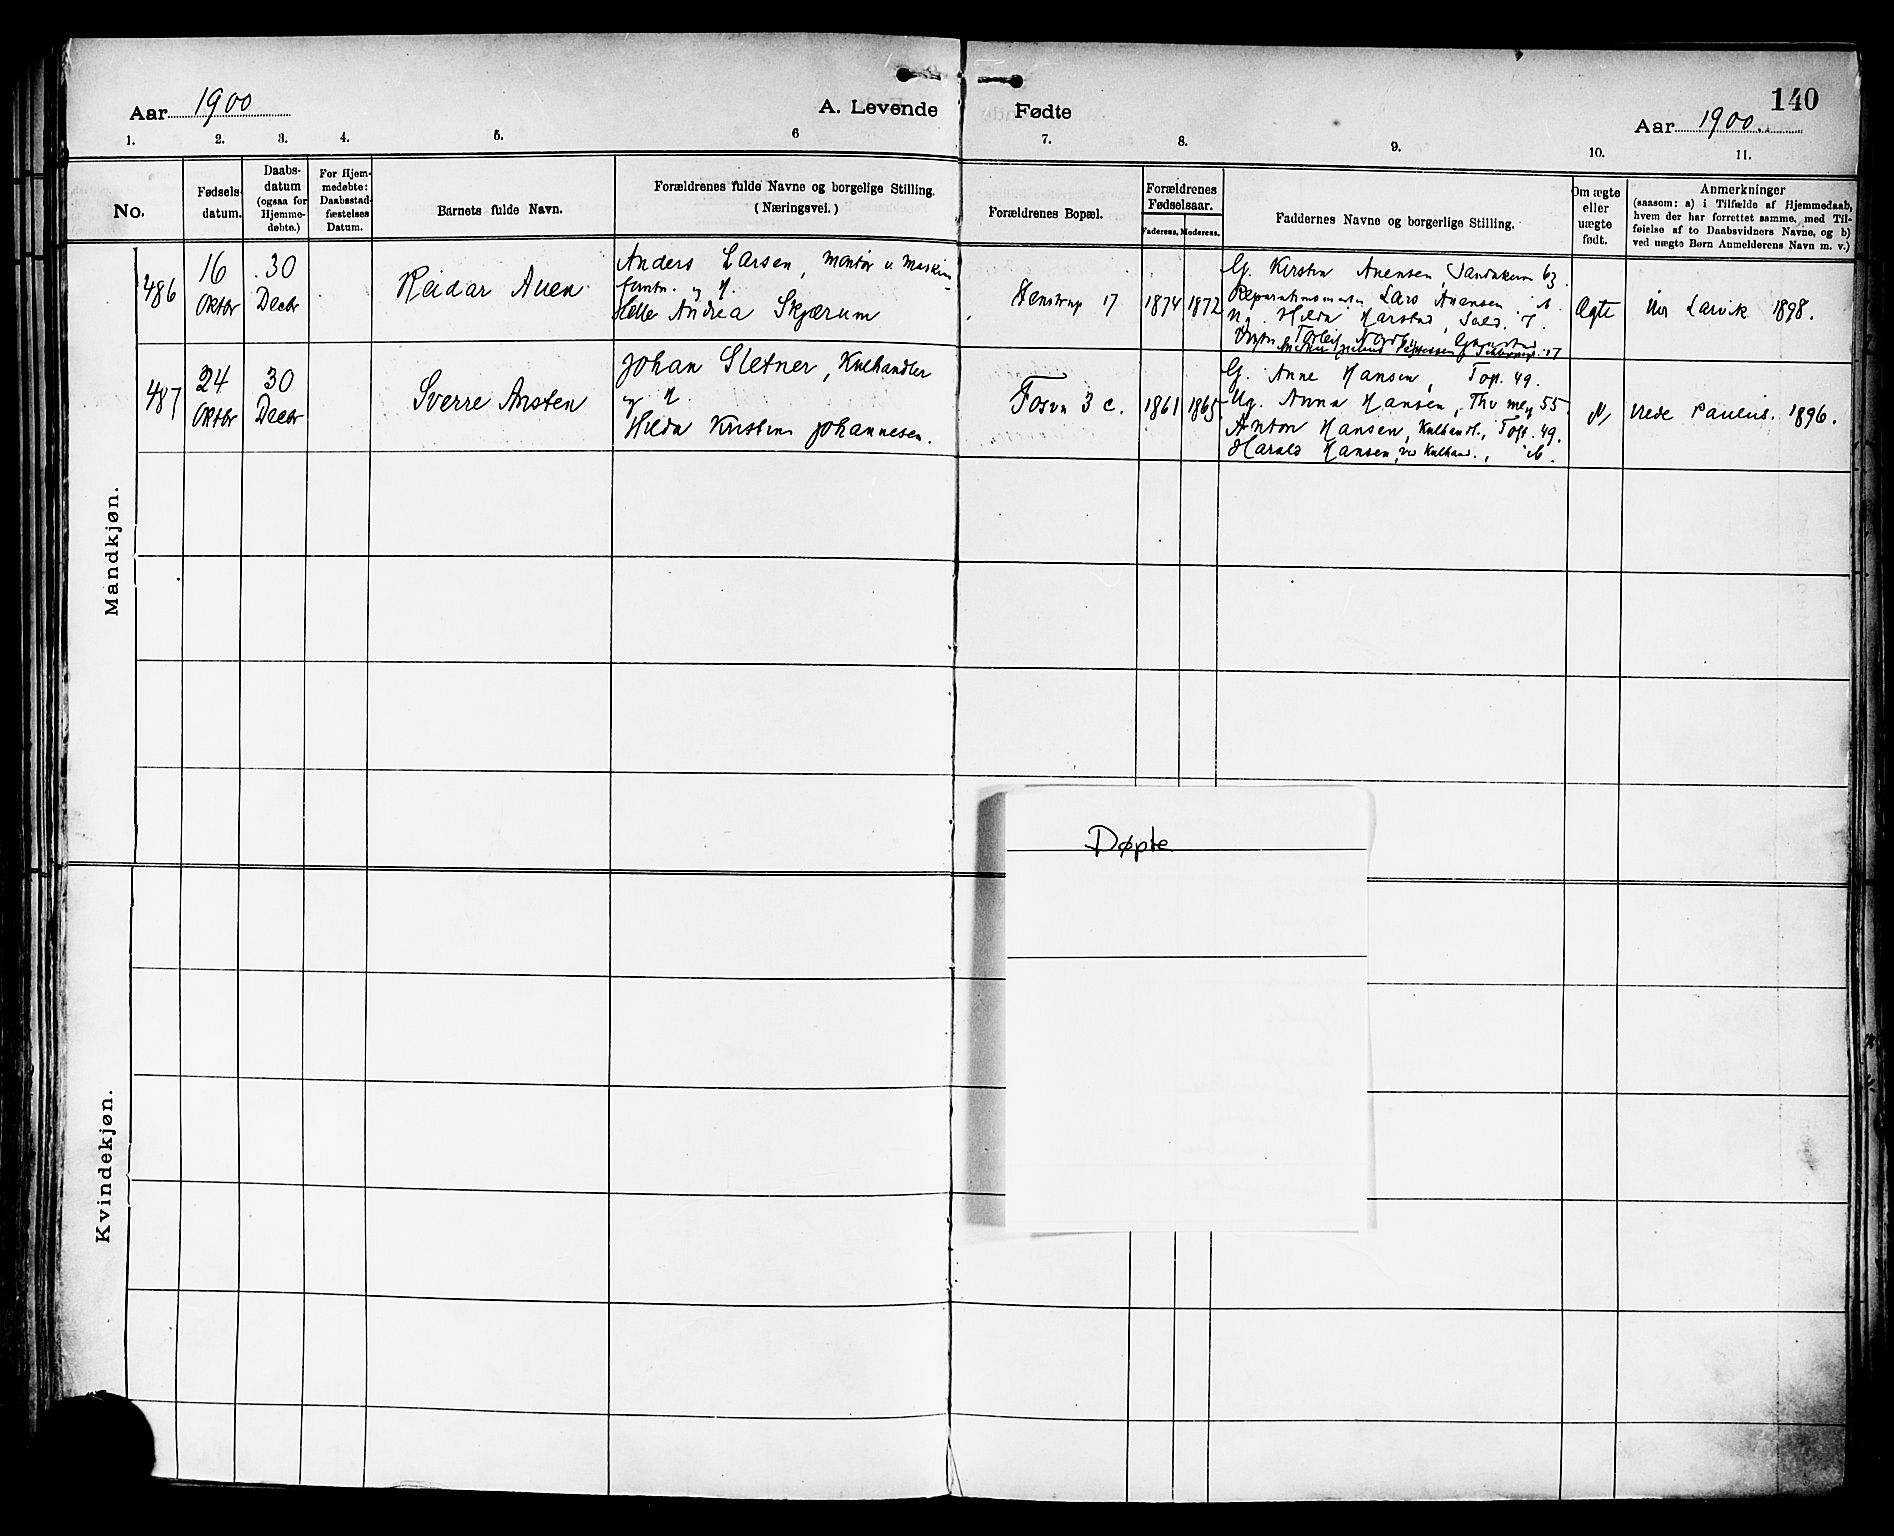 Aar 1900
A. Levende
Fødte
140
Aar 1900.
1. 2. 3. 4. 5. 6 7. 8. 9. 10. 11.
No.
Fødsels-
datum.
Daabs-
datum
(ogsaa for
Hjemme-
døbte.)
For Hjem-
medøbte:
Daabsstad-
fæstelses
Datum.
Barnets fulde Navn.
Forældrenes fulde Navne og borgelige Stilling.
(Næringsvei.)
Forældrenes Bopæl.
Forældrenes
Fødselsaar.
Faderens. Moderens.
Faddernes Navne og borgerlige Stilling.
Om ægte
eller
uægte
født.
Anmerkninger
(saasom: a) i Tilfælde af Hjemmedaab,
hvem der har forrettet samme, med Til-
føielse af to Daabsvidners Navne, og b)
ved uægte Børn Anmelderens Navn m. v.)
Mandkjøn.
486
16
Oktbr
30
Decbr
Reidar Auen
Anders Larsen, Montør v. Maskin
og H.
Andrea Skjærum
Stenstrup 17
1874 1872
G. Kirsten Anensen, 63
Lars Anensen
Ug. Hilda Harstad,
Ægte
Larvik 1898.
487
24
Oktbr
30
Decbr
Sverre Ansten
Johan Sletner, Kulhandler
og H.
Hilda Kristine Johannesen.
Fosvn 3 c.
1861 1865
G. Anne Hansen, Toft. 49.
Ug. Anna Hansen, Thv mey 55.
Anton Hansen, Kulhandl., Toft. 49.
Harald Hansen, v. Kulhand.,
Paulus. 1896.
Døpte
Kvindekjøn.